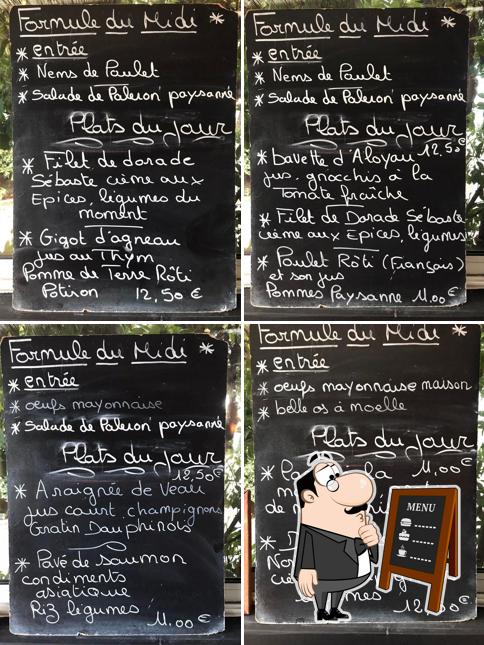 Formule du Midi *
* entrée
* Nems de Poulet
* Salade de Paleron paysanne
Plats du jour
* Filet de dorade
Sébaste crème aux
Epices, légumes du
moment
* Gigot d'agneau
jus au Thym
Pomme de Terre Rôti
Potiron 12,50 €
Formule du Midi *
* entrée
* Nems de Poulet
* Salade de Paleron paysanne
Plats du jour
* bavette d'Aloyau 12,50€
jus, gnocchis à la
Tomate fraîche
* Filet de Dorade Sébaste
crème aux Epices, légumes
* Poulet Rôti (Français)
et son jus
Pommes Paysanne 11.00€
Formule du Midi *
* entrée
* oeufs mayonnaise
* Salade de Paleron paysanne
Plats du jour
12,50€
* Araignée de Veau
jus court, champignons
Gratin Dauphinois
* Pavé de Saumon
condiments
asiatique
Riz légumes
11.00€
Formule du Midi *
* entrée
* oeufs mayonnaise maison
* belle os à moelle
Plats du jour
11,00€
MENU